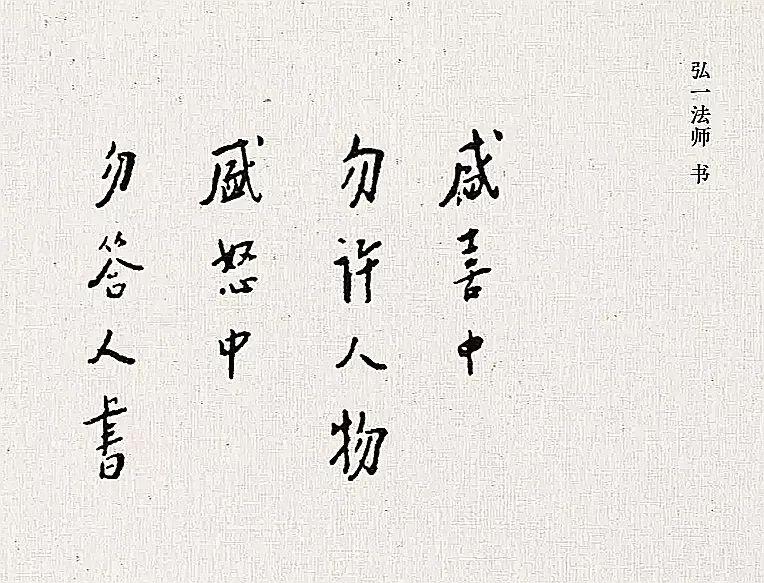 弘一法师 书
盛喜中
勿许人物
盛怒中
勿答人书